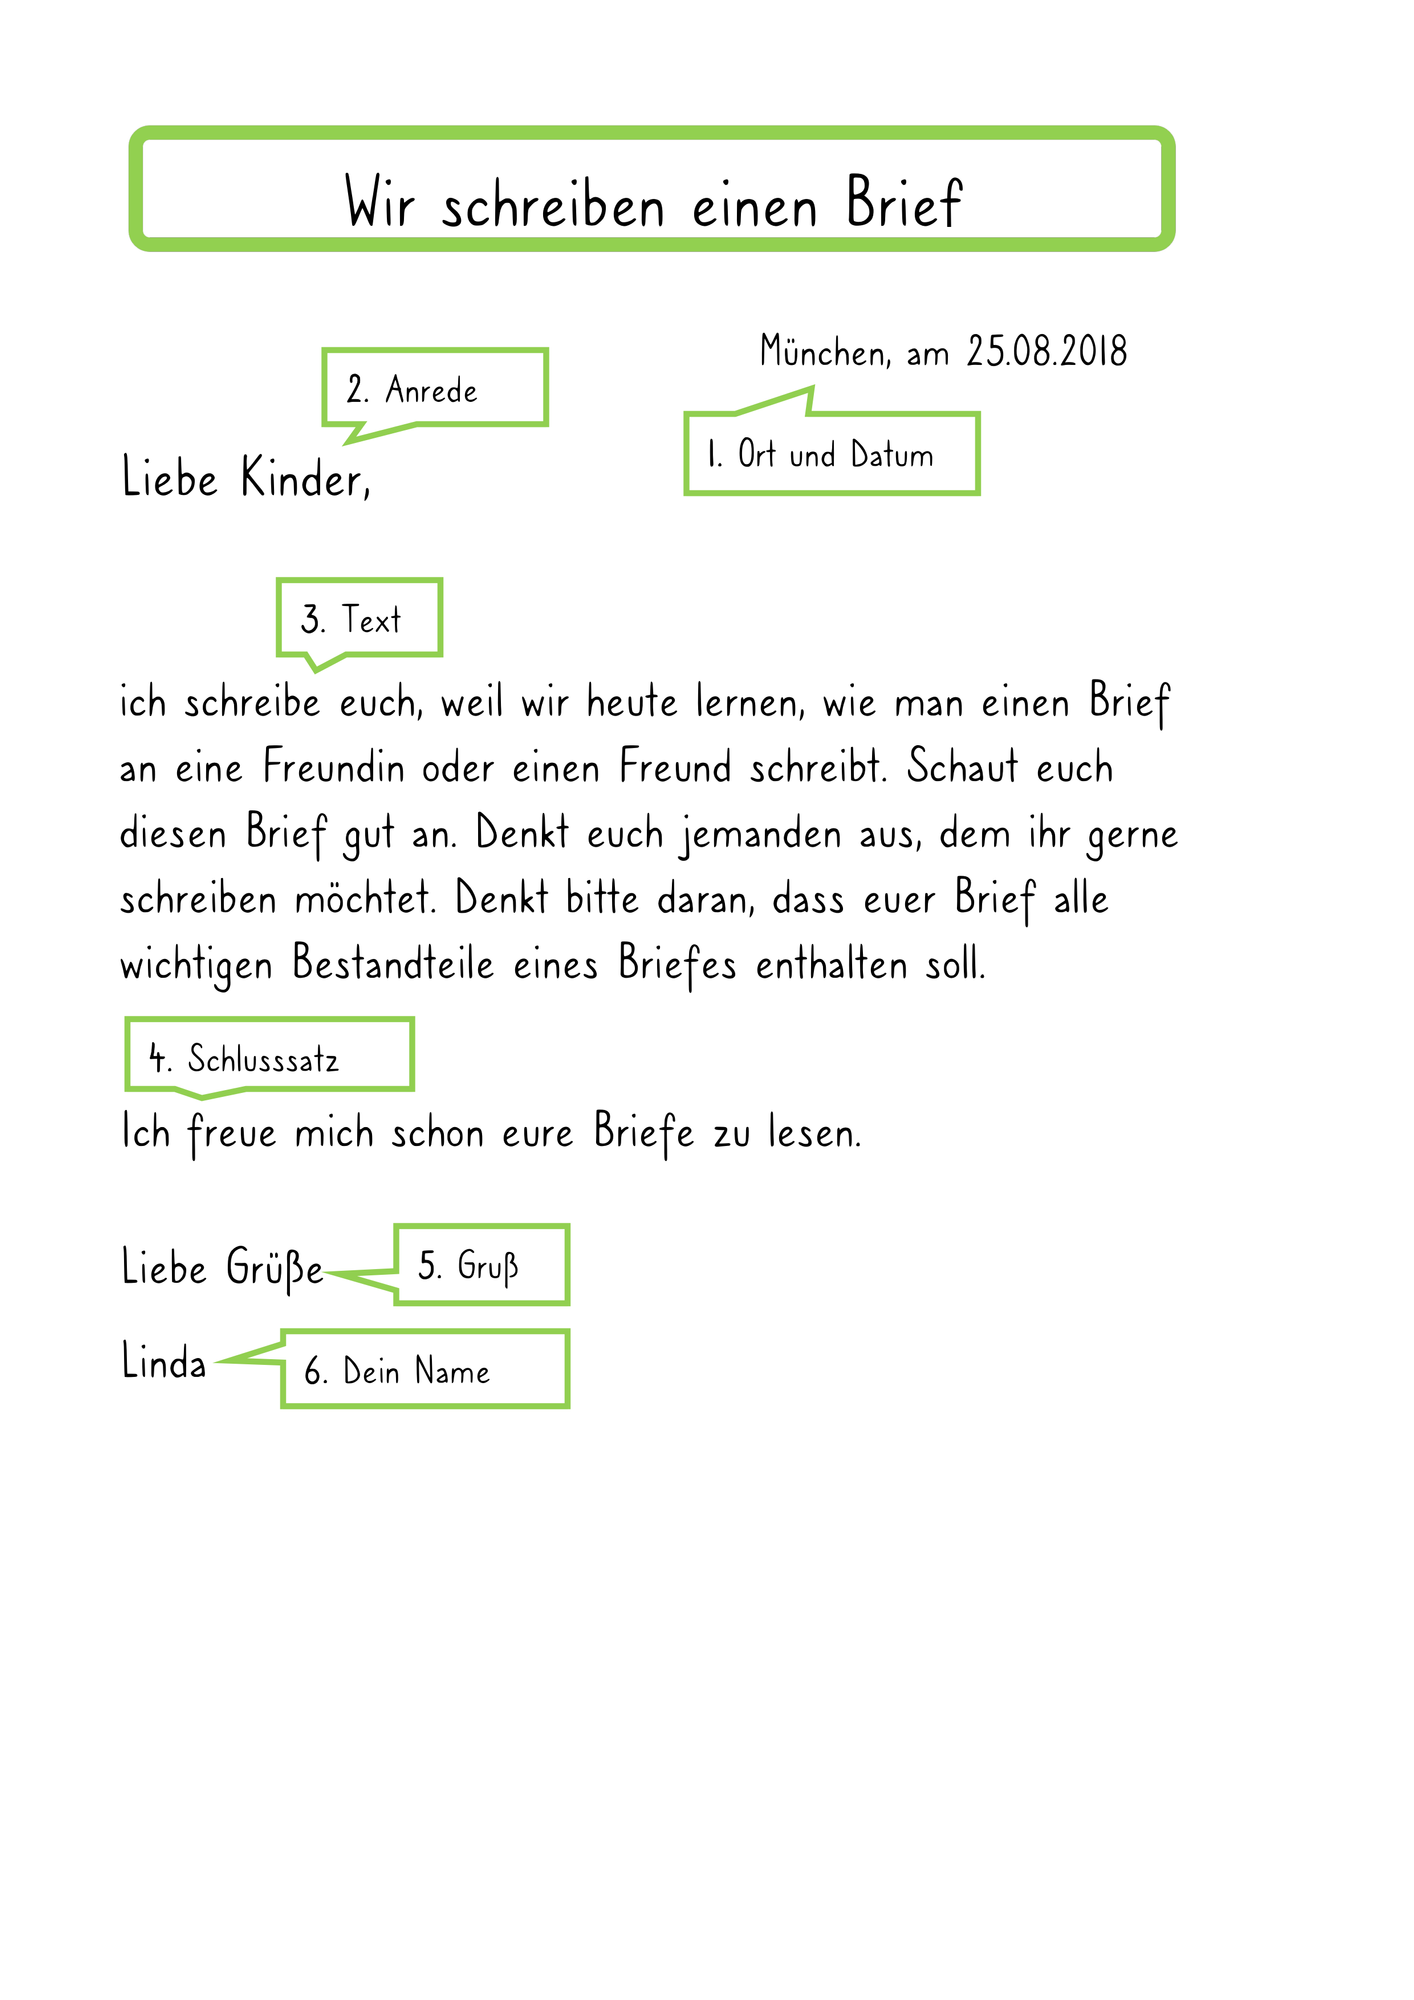 Wir schreiben einen Brief
München, am 25.08.2018
2. Anrede
1. Ort und Datum
Liebe Kinder,
3. Text
ich schreibe euch, weil wir heute lernen, wie man einen Brief
an eine Freundin oder einen Freund schreibt. Schaut euch
diesen Brief gut an. Denkt euch jemanden aus, dem ihr gerne
schreiben möchtet. Denkt bitte daran, dass euer Brief alle
wichtigen Bestandteile eines Briefes enthalten soll.
4. Schlusssatz
Ich freue mich schon eure Briefe zu lesen.
Liebe Grüße
5. Gruß
Linda
6. Dein Name